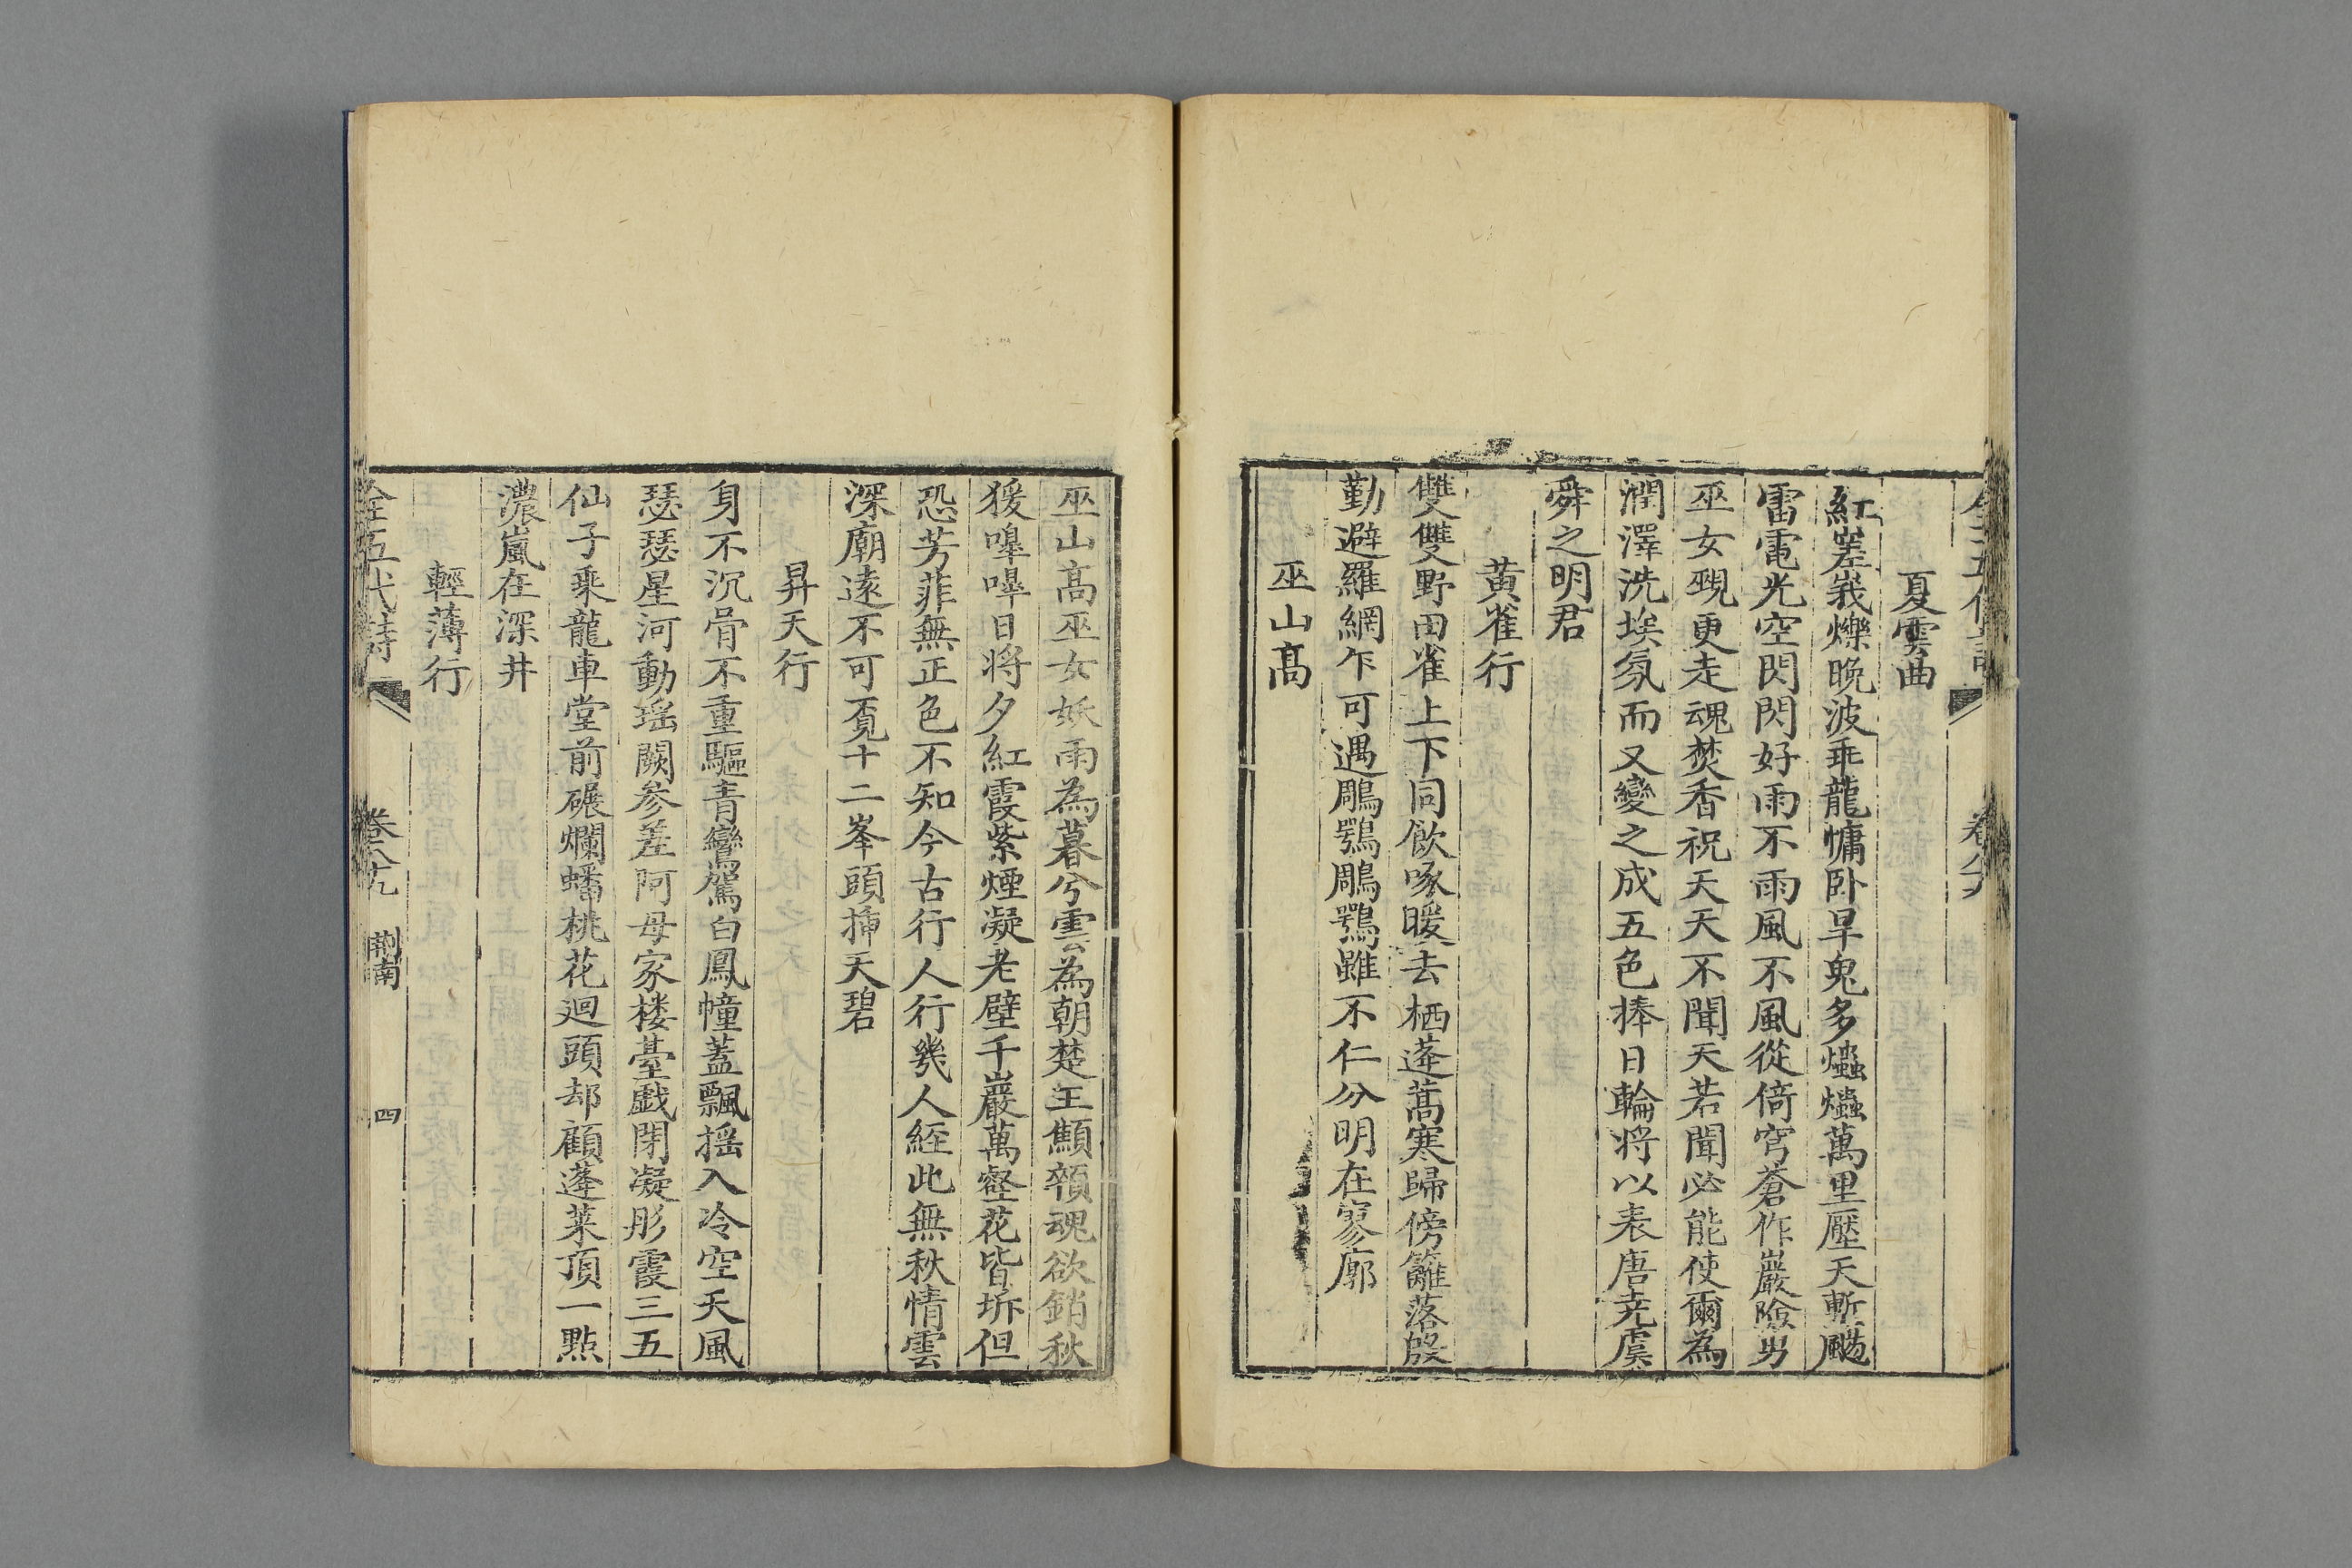 夏雲曲
紅嵳峩爍晚波乖龍慵卧旱鬼多爞爞萬里壓天塹颸
雷電光空閃閃好雨不雨風不風從倚穹蒼作巖險男
巫女覡更走魂焚香祝天天不聞天若聞必能使爾為
潤澤洗埃氛而又變之成五色捧日輪将以表唐尭虞
舜之明君
黄雀行
雙雙野田雀上下同飲啄暖去栖蓬蒿寒歸傍籬落殷
勤避羅網乍可遇鵰鶚鵰鶚雖不仁分明在寥廓
巫山髙
巫山髙巫女妖雨為暮兮雲為朝楚王顦顇魂欲銷秋
猨嘷嘷日将夕紅霞紫煙凝老壁千巖萬壑花皆坼但
恐芳菲無正色不知今古行人行幾人経此無秋情雲
深廟逺不可覔十二峯頭揷天碧
昇天行
身不沉骨不重驅青鸞駕白鳳幢蓋飄揺入冷空天風
瑟瑟星河動瑶闕參差阿母家楼䑓戯閉凝彤霞三五
仙子乘龍車堂前碾爛蟠桃花迴頭却顧蓬莱頂一點
濃嵐在深井
輕薄行
全五代詩
卷八十九
荆南
四